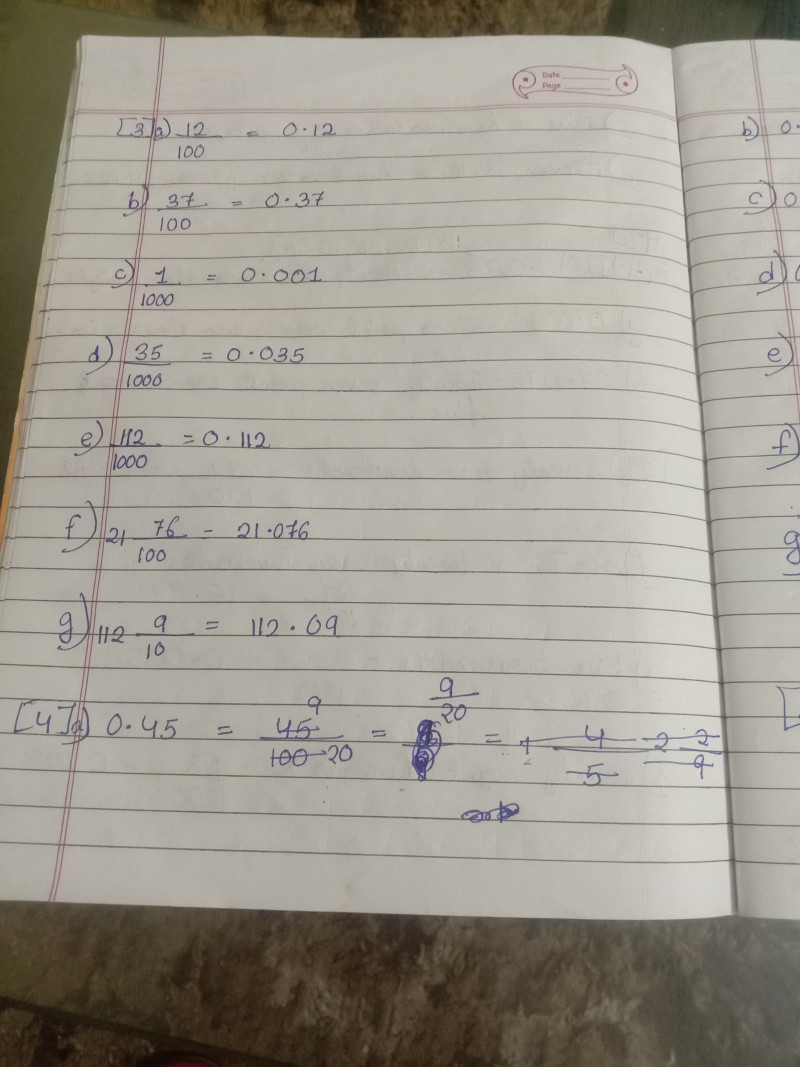 Date
Page
[3]a) 12/100 = 0.12
b) 37/100 = 0.37
c) 1/1000 = 0.001
d) 35/1000 = 0.035
e) 112/1000 = 0.112
f) 21 76/100 = 21.076
g) 112 9/10 = 112.09
[4]a) 0.45 = 45/100 9/20 = 9/20 = 1 4/5 2 2/9
b) 0.
c) 0
d)
e)
f)
g